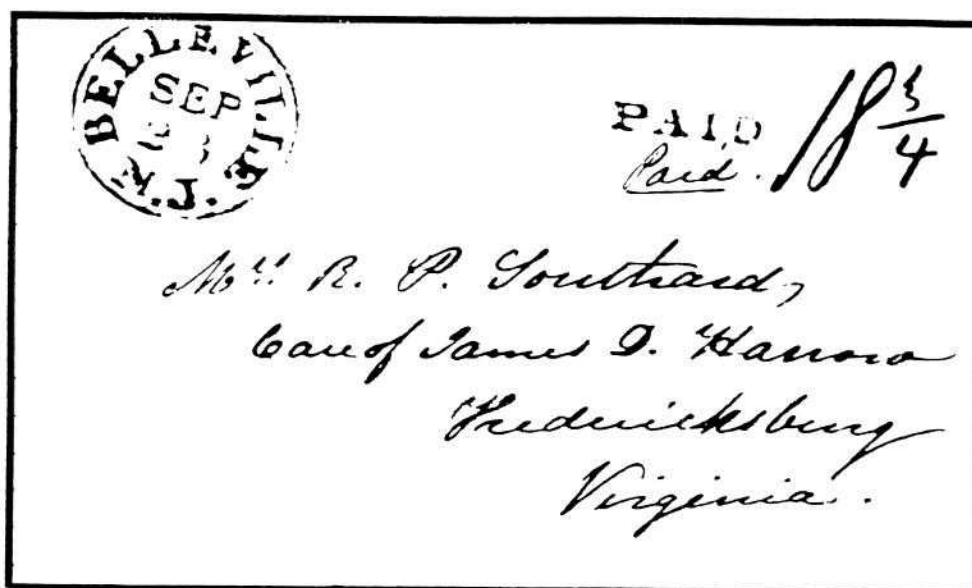 BELLEVILLE N.J.
SEP
PAID
Paid. 18 3/4
Mrs. R. P. Southard,
Care of James D. Harrow
Fredericksburg
Virginia.